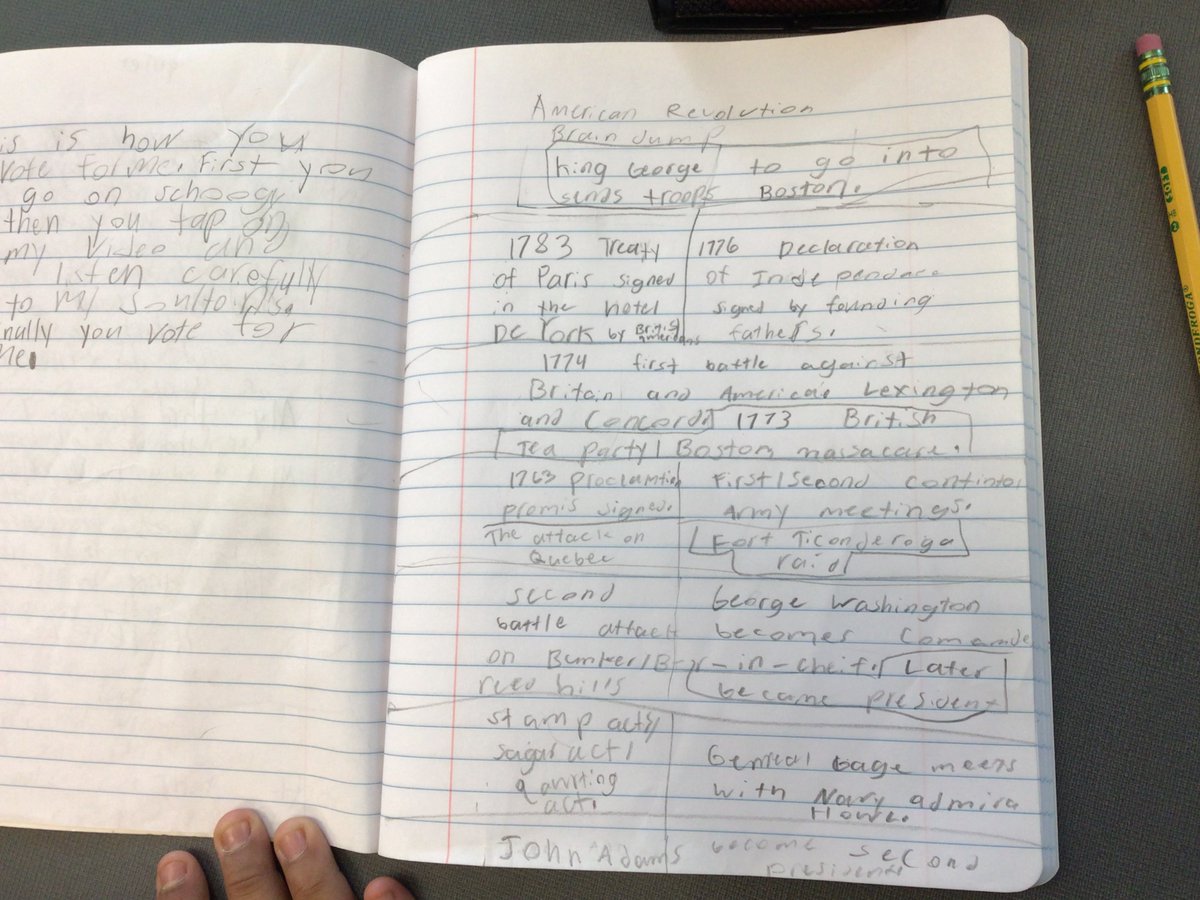 is is how you
vote for me. First you
go on schoogy
then you tap on
my video and
listen carefully
to my
inally you vote for
me.
American Revolution
Brain dump
King George to go into
sends troops Boston.
1783 Treaty
of Paris signed
in the hotel
De York by British
1776 Declaration
of Independence
signed by founding
fathers.
1774 first battle against
Britain and America's Lexington
and Concord
1773 British
Tea party/Boston massacare.
1763 proclamtion
promis signed.
First/Second
Army meetings.
The attack on
Quebec
Fort Ticonderoga
raid
second
battle attack
on Bunker/B
reed hills
George Washington
becomes Comande
r-in-cheif. Later
became president
stamp act/
sugar act/
act.
General Gage meets
with Navy admira
Howe.
John Adams become second
president
TICONDEROGA®